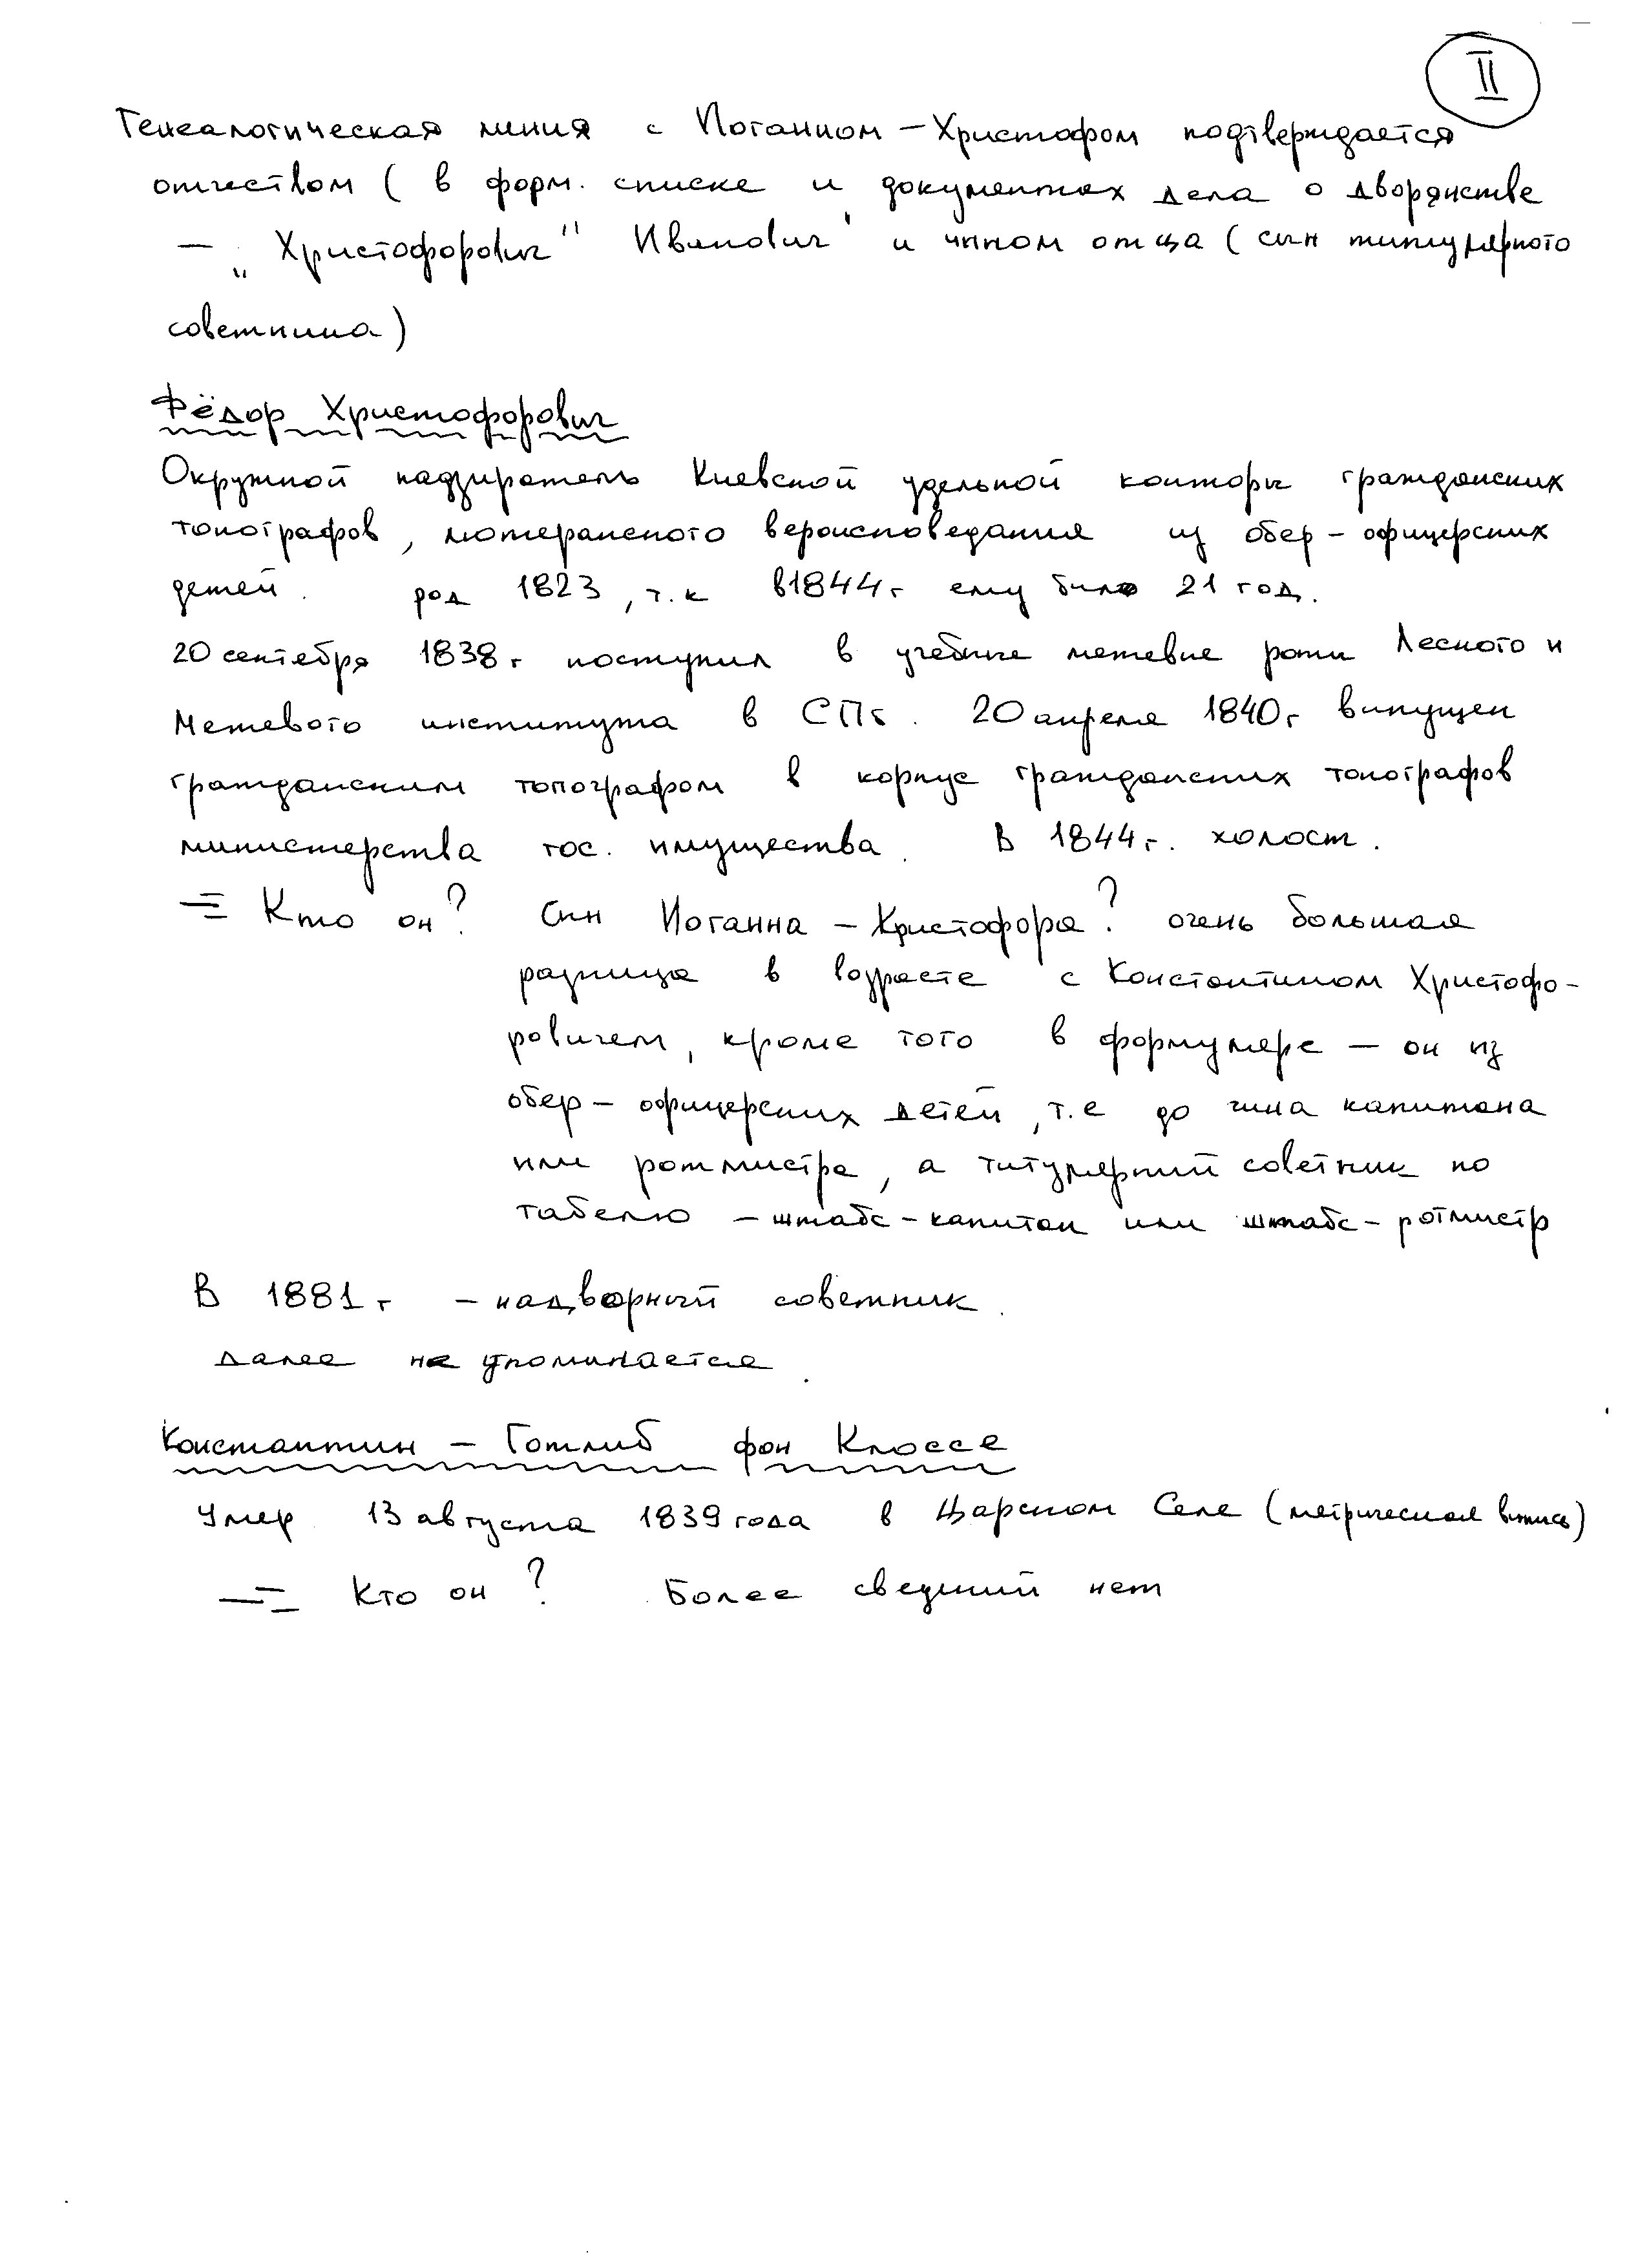 II
Генеалогическая линия с Иоганном-Христофом подтверждается
отчеством ( в форм. списке и документах дела о дворянстве
— „Христофорович" Иванович' и чином отца ( сын титулярного
советника)
Фёдор Христофорович
Окружной надзиратель Киевской удельной конторы гражданских
топографов, лютеранского вероисповедания из обер-офицерских
детей. род 1823, т.к в 1844г ему было 21 год.
20 сентября 1838г поступил в учебные межевые роты Лесного и
Межевого института в СПб. 20 апреля 1840г выпущен
гражданским топографом в корпус гражданских топографов
министерства гос. имущества. В 1844г. холост.
= Кто он? Сын Иоганна-Христофора? очень большая
разница в возрасте с Константином Христофо-
ровичем, кроме того в формуляре — он из
обер-офицерских детей, т.е до чина капитана
или ротмистра, а титулярный советник по
табелю - штабс-капитан или штабс-ротмистр
В 1881г - надворный советник.
далее не упоминается.
Константин - Готлиб фон Клоссе
Умер 13 августа 1839 года в Царском Селе (метрическая выпись)
= Кто он? Более сведений нет